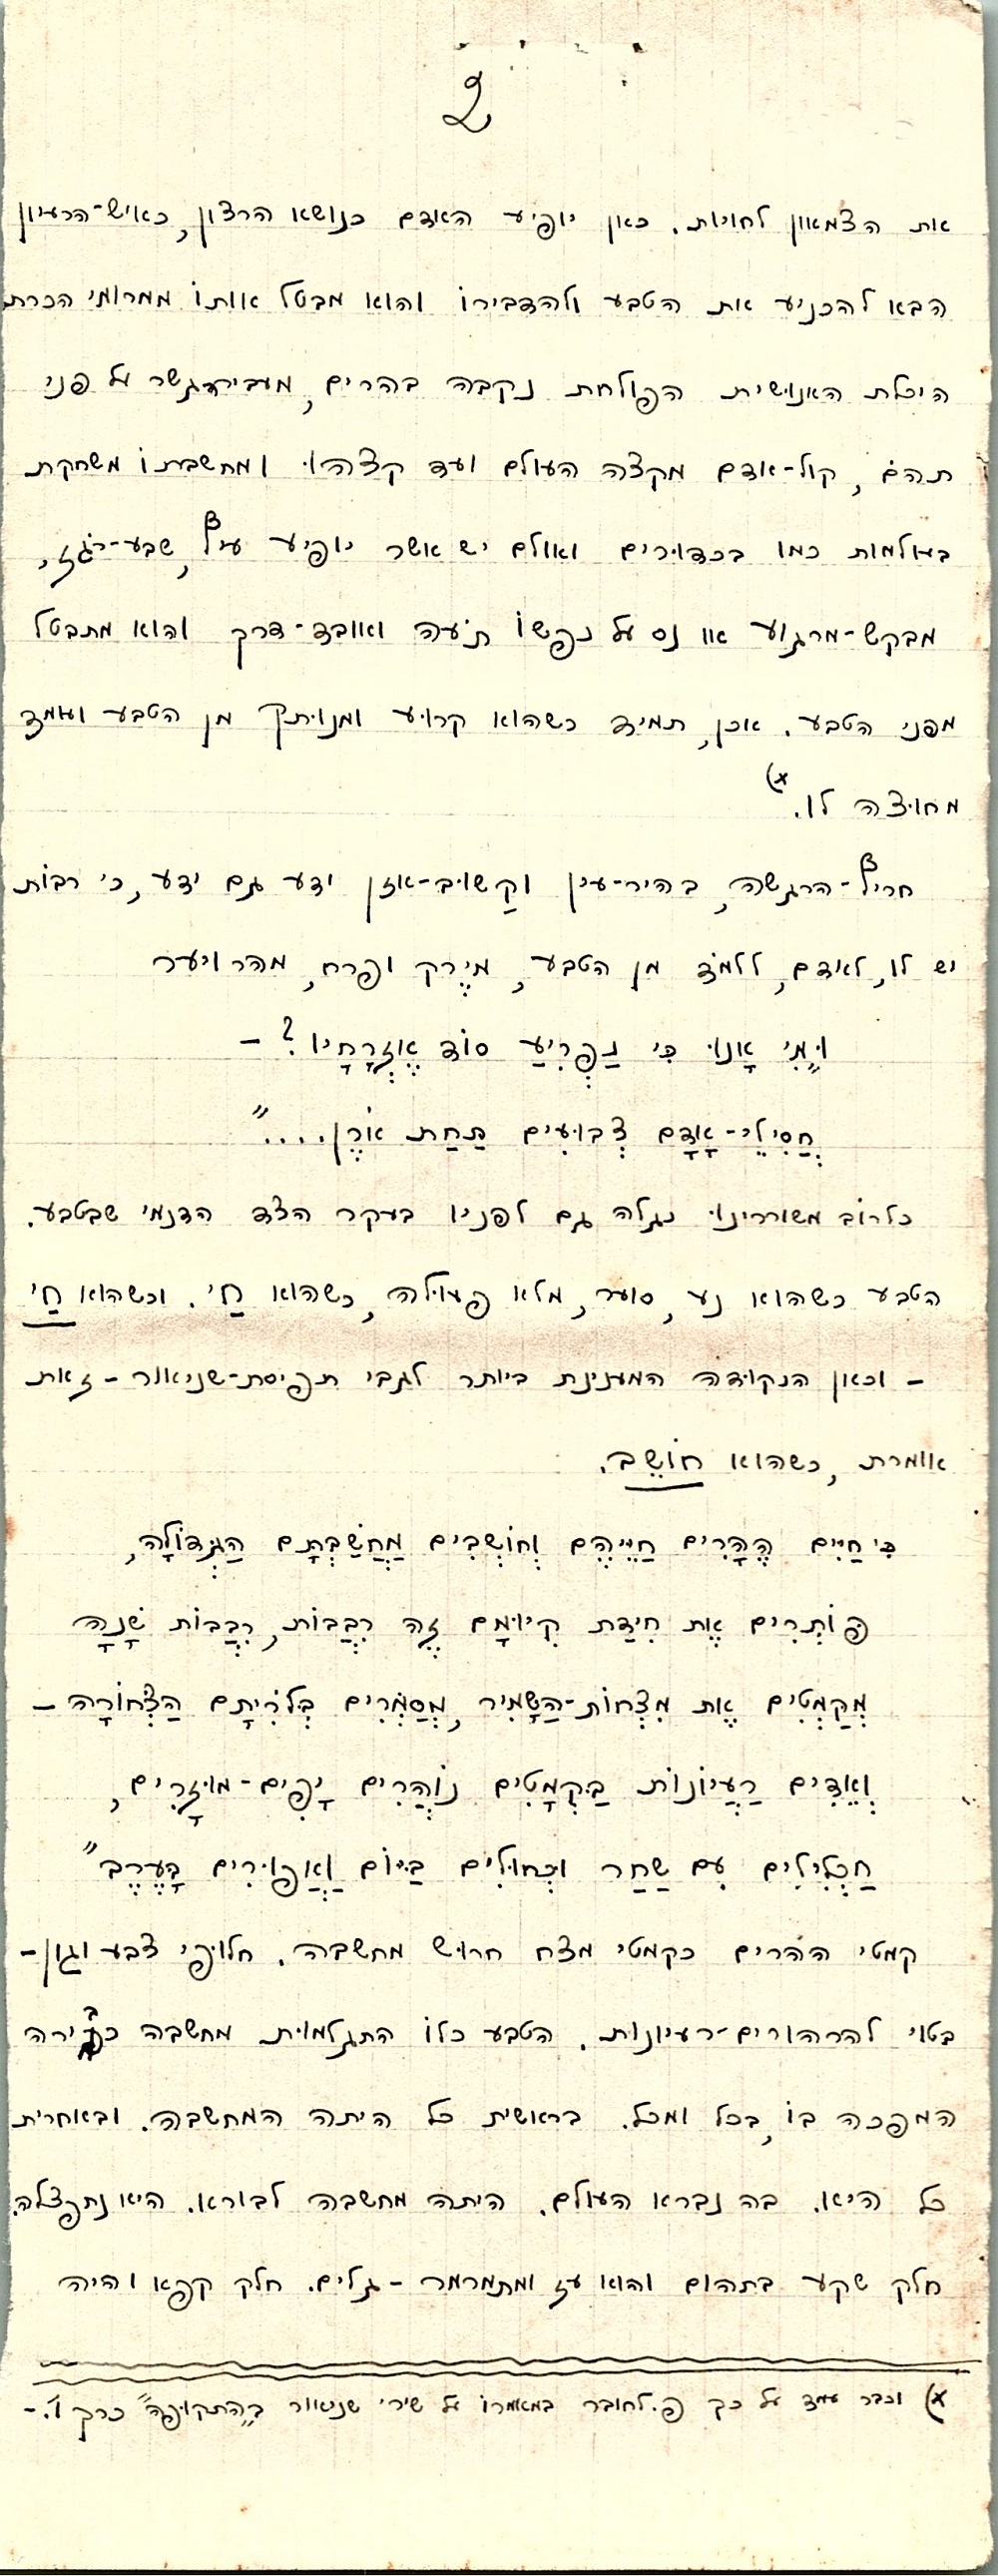 2
את הצמאון לחויות. כאן יופיע האדם כנושא הרצון, כאיש-הרעיון
הבא להכניע את הטבע ולהדבירו והוא מבטל אותו ממרומי הכרת
היכלת האנושית הפולחת נקבה בהרים, מעבירה גשר על פני
תהם, קול-אדם מקצה העולם ועד קצהו ומחשבתו משחקת
בעולמות כמו בכדורים ואולם יש אשר יופיע עיף, שבע-רגז,
מבקש-מרגוע או נס על נפשו תעה ואובד-דרך והוא מתבטל
מפני הטבע. אכן, תמיד כשהוא קרוע ומנותק מן הטבע ועומד
מחוצה לו. x)
חריף-הרגשה, בהיר-עין וקַשוב-אזן ידע גם ידע, כי רבות
יש לו, לאדם, ללמד מן הטבע, מיֶרק ופרח, מהר ויער
וּמִי אָנוּ כִּי נַפְרִיעַ סוֹד אֶזְרָחָיו? –
חֲסִילֵי-אָדָם צְבוּעִים תַּחַת אֹרֶן...."
כלרוב משוררינו נגלה גם לפניו בעקר הצד הדנמי שבטבע.
הטבע כשהוא נע, סוער, מלא פעולה, כשהוא חַי. וכשהוא חַי
– וכאן הנקודה המענינת ביותר לגבי תפיסת-שניאור – זאת
אומרת, כשהוא חוֹשֵׁב.
כִּי חַיִּים הֶהָרִים חַיֵּיהֶם וְחוֹשְׁבִים מַחֲשַׁבְתָּם הַגְּדוֹלָה,
פּוֹתְרִים אֶת חִידַת קִיוּמָם זֶה רְבָבוֹת, רְבָבוֹת שָׁנָה
מְקַמְּטִים אֶת מִצְחוֹת-הַשָּׁמִיר, מְסַמְּרִים בְּלֹרִיתָם הַצְּחוֹרָה –
וְאֵדִים רַעֲיוֹנוֹת בַּקְּמָטִים נוֹהֲרִים יָפִים-מוּזָרִים,
חַכְלִילִים עִם שַׁחַר וּכְחוּלִים בַּיּוֹם וַאֲפוּרִים בָּעֶרֶב"
קמטי ההרים כקמטי מצח חרוש מחשבה. חלופי צבע וגון –
בטוי להרהורים-רעיונות. הטבע כלו התגלמות מחשבה כבירה
המפכה בו, בכל ומכל. בראשית כל היתה המחשבה. ובאחרית
כל היא. בה נברא העולם. היתה מחשבה לבורא. היא נתפצלה.
חלק שקע בתהום והוא עז ומתמרמר – גלים. חלק קפא והיה
x) וכבר עמד על כך פ. לחובר במאמרו על שירי שניאור ב"התקופה" כרך ו'. –